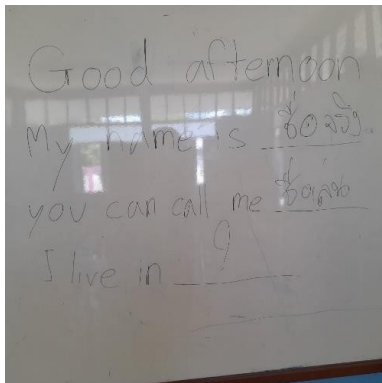 Good afternoon
My name is ชื่อจริง
you can call me ชื่อเล่น
I live in ?